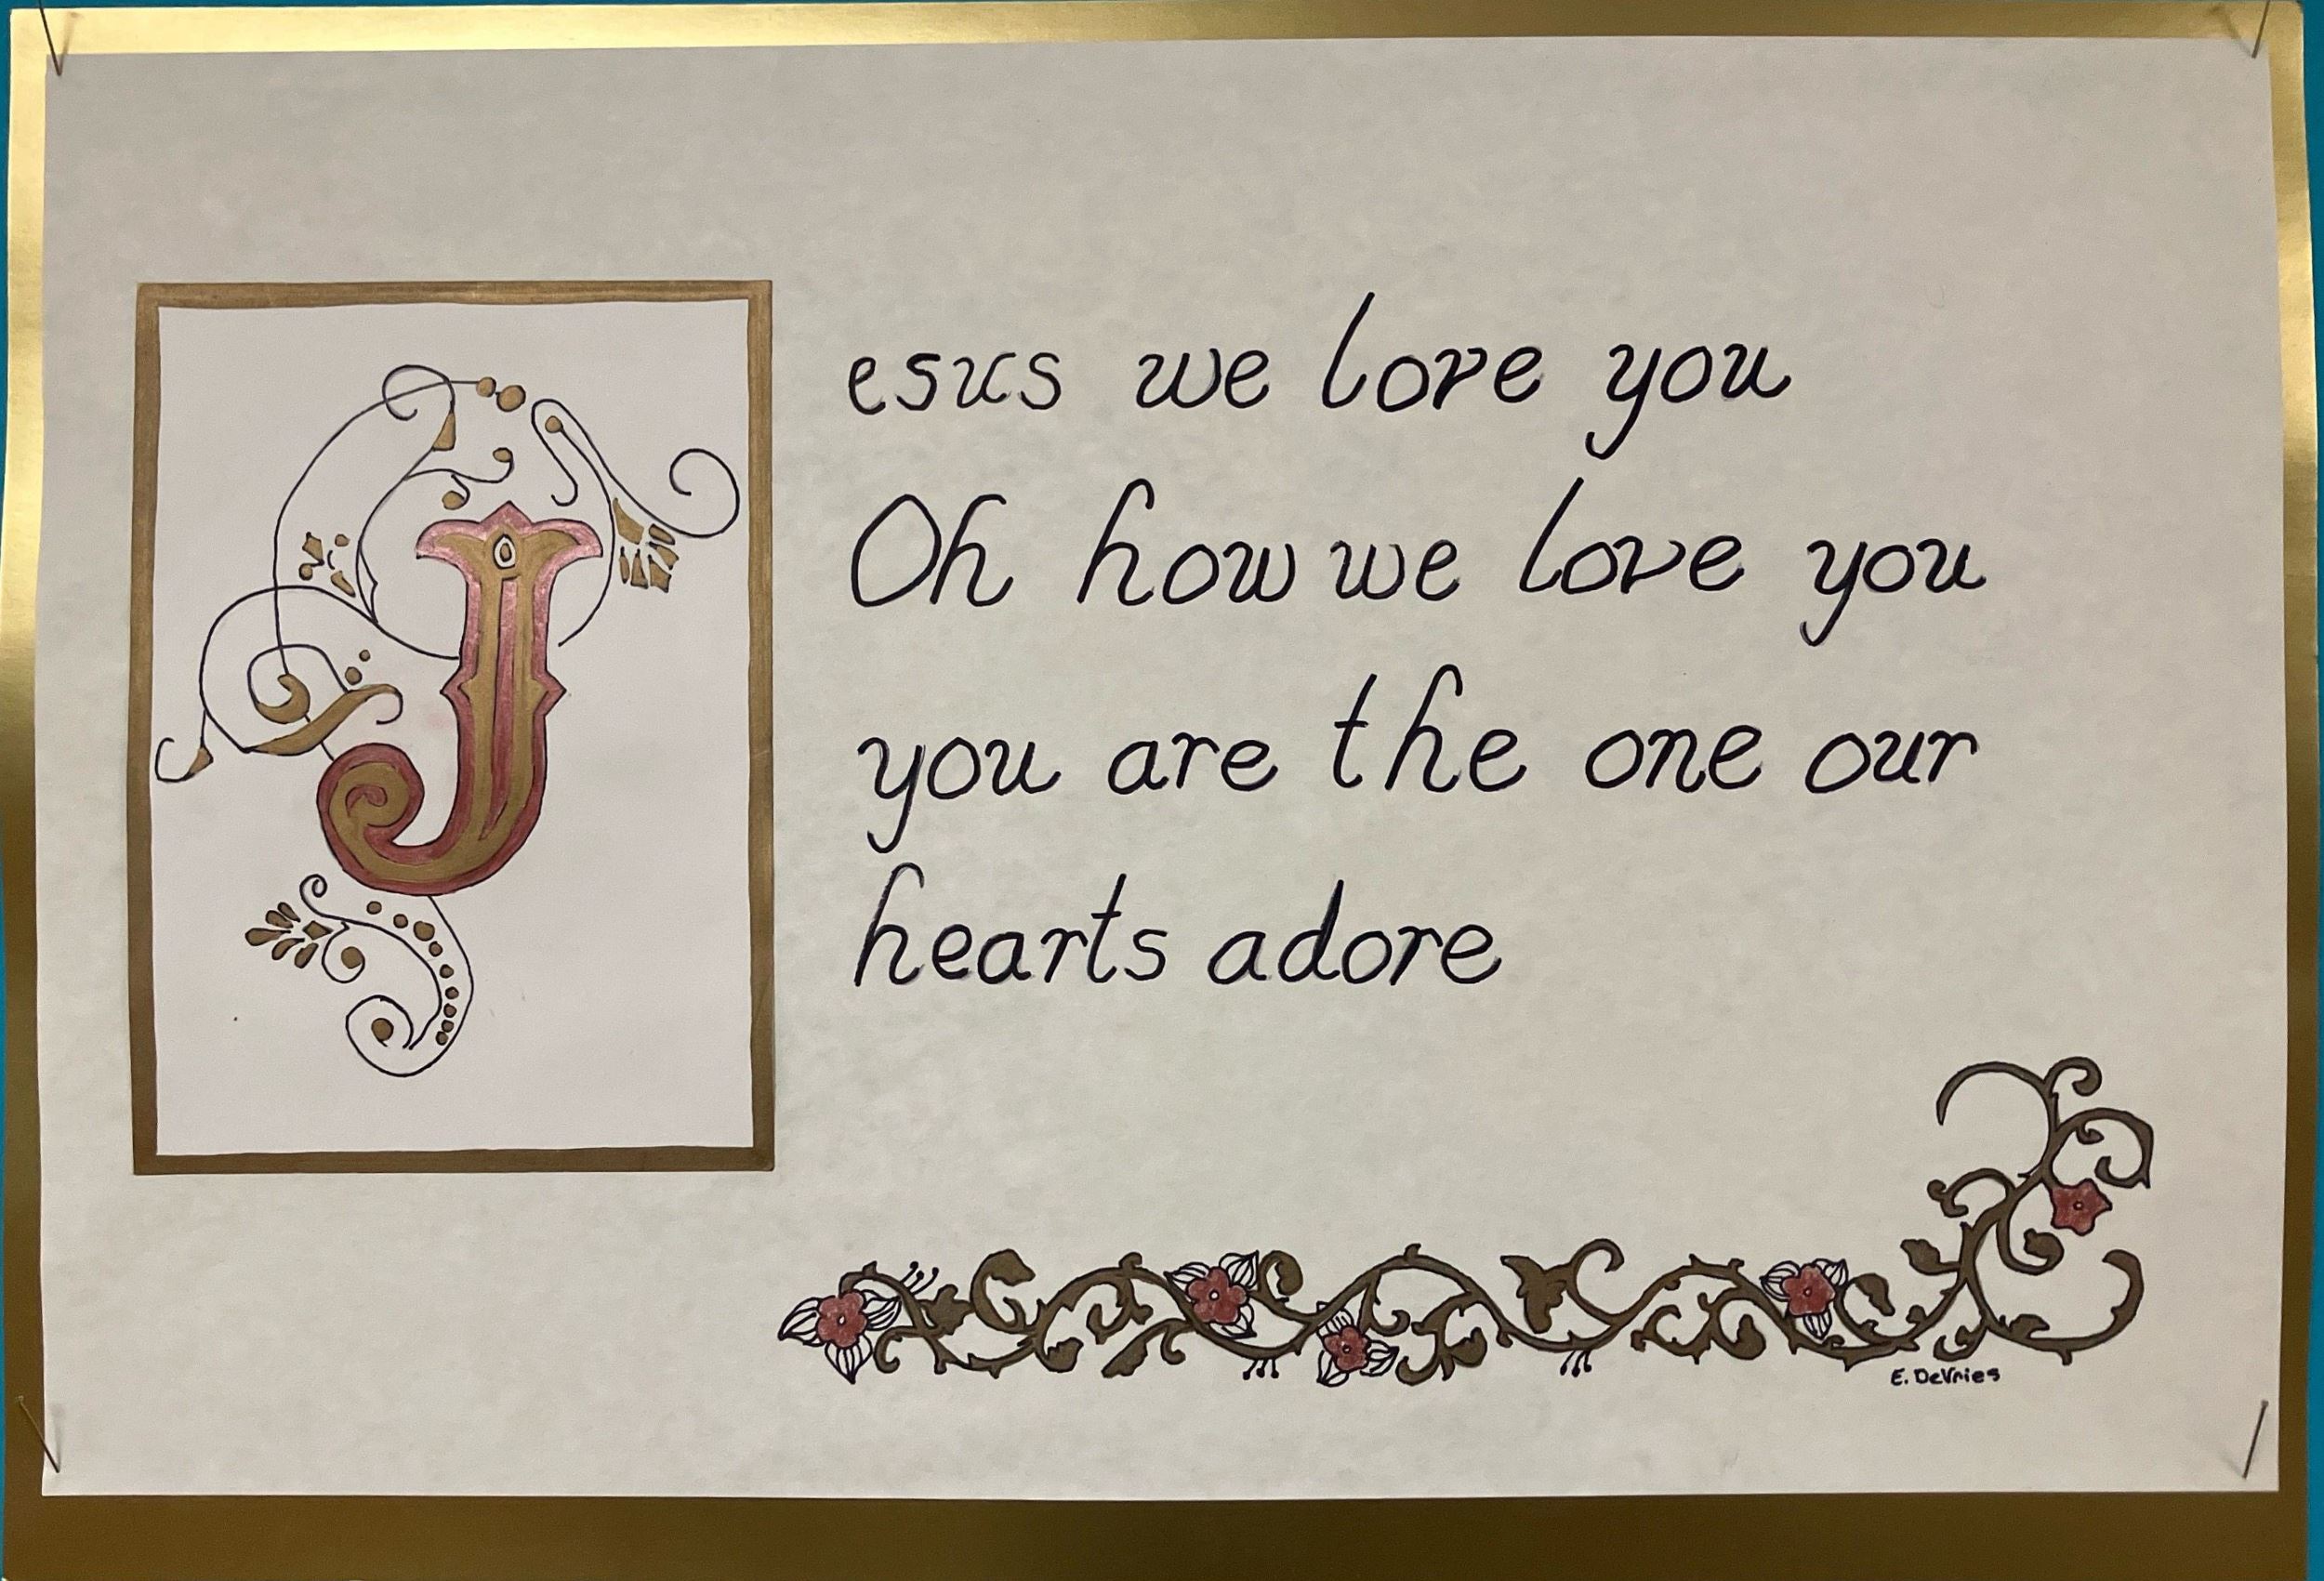 Jesus we love you
Oh how we love you
you are the one our
hearts adore
E. DeVries